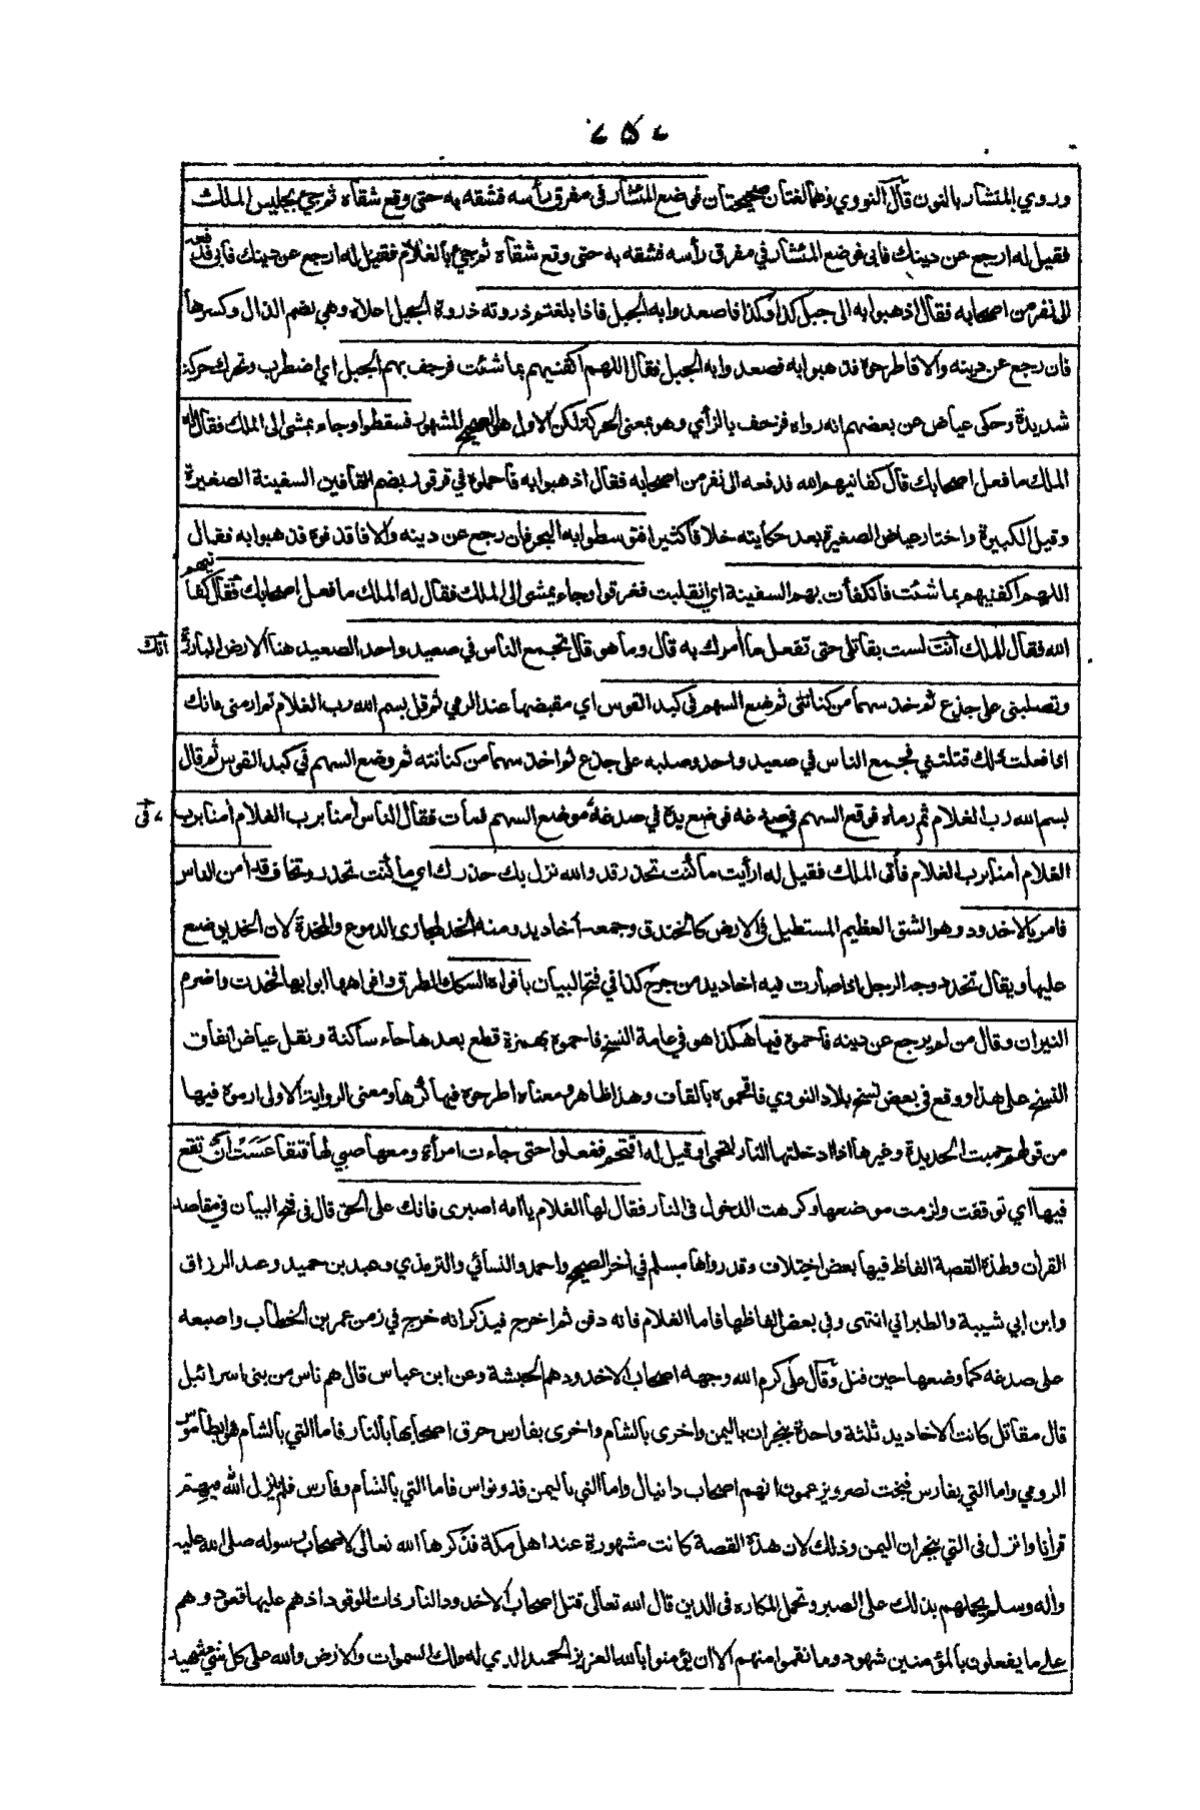 ٧٥٧
وروي المنشار بالنون قال النووي وهما لغتان صحيحتان فوضع المنشار في مفرق رأسه فشقه به حتى وقع شقاه ثم جئ بجليس الملك
فقيل له ارجع عن دينك فابى فوضع المئشار في مفرق رأسه فشقه به حتى وقع شقاه ثم جئ بالغلام فقيل له ارجع عن دينك فابى فدفعه
الى نفر من اصحابه فقال اذهبوا به الى جبل كذا وكذا فاصعدوا به الجبل فاذا بلغتم ذروته ذروة الجبل اعلاه وهي بضم الذال وكسرها
فان رجع عن دينه والا فاطرحوه فذهبوا به فصعدوا به الجبل فقال اللهم اكفنيهم بما شئت فرجف بهم الجبل اي اضطرب وتحرك حركة
شديدة وحكى عياض عن بعضهم انه رواه فزحف بالزأي وهو بمعنى الحركة لكن الاول هو الصحيح المشهور فسقطوا وجاء يمشي الى الملك فقال له
الملك ما فعل اصحابك قال كفانيهم الله فدفعه الى نفر من اصحابه فقال اذهبوا به فاحملوه في قرقور بضم القافين السفينة الصغيرة
وقيل الكبيرة واختار عياض الصغيرة بعد حكايته خلافا كثيرا فتوسطوا به البحر فان رجع عن دينه والا فاقذفوه فذهبوا به فقال
اللهم اكفنيهم بما شئت فانكفأت بهم السفينة اي انقلبت فغرقوا وجاء يمشي الى الملك فقال له الملك ما فعل اصحابك فقال كفانيهم
الله فقال للملك انت لست بقاتلي حتى تفعل ما امرك به قال وما هو قال تجمع الناس في صعيد واحد الصعيد هنا الارض البارزة
انك
وتصلبني على جذع ثم خذ سهما من كنانتي ثم ضع السهم في كبد القوس اي مقبضها عند الرمي ثم قل بسم الله رب الغلام ثم ارمني فانك
اذا فعلت ذلك قتلتني فجمع الناس في صعيد واحد وصلبه على جذع ثم اخذ سهما من كنانته ثم وضع السهم في كبد القوس ثم قال
بسم الله رب الغلام ثم رماه فوقع السهم في صدغه فوضع يده في صدغه موضع السهم فمات فقال الناس امنا برب الغلام امنا برب
الغلام امنا برب الغلام فأتى الملك فقيل له ارأيت ما كنت تحذر قد والله نزل بك حذرك اي ما كنت تحذر وتخاف قد امن الناس
فامر بالاخدود وهو الشق العظيم المستطيل في الارض كالخندق وجمعه اخاديد ومنه الخد لمجاري الدموع والمخدة لان الخد يوضع
عليها ويقال تخدد وجه الرجل اذا صارت فيه اخاديد من جرح كذا في فتح البيان بافواه السكك الطرق وافواهها ابوابها فخدت واضرم
النيران وقال من لم يرجع عن دينه فاحموه فيها هكذا هو في عامة النسخ فاحموه بهمزة قطع بعدها حاء ساكنة ونقل عياض اتفاق
النسخ على هذا ووقع في بعض نسخ بلاد النووي فاقحموه بالقاف وهذا ظاهر ومعناه اطرحوه فيها كرها ومعنى الرواية الاولى ارموه فيها
من قولهم حميت الحديدة وغيرها اذا ادخلتها النار لتحمى او قيل له اقتحم ففعلوا حتى جاءت امرأة ومعها صبي لها فتقاعست ان تقع
فيها اي توقفت ولزمت موضعها وكرهت الدخول في النار فقال لها الغلام يا امه اصبري فانك على الحق قال في فتح البيان في مقاصد
القرأن ولهذه القصة الفاظ فيها بعض اختلاف وقد رواها مسلم في اخر الصحيح واحمد والنسائي والترمذي وعبد بن حميد وعبد الرزاق
وابن ابي شيبة والطبراني انتهى وفي بعض الفاظها فاما الغلام فانه دفن ثم اخرج فيذكر انه خرج في زمن عمر بن الخطاب واصبعه
على صدغه كما وضعها حين قتل وقال علي كرم الله وجهه اصحاب الاخدود هم الحبشة وعن ابن عباس قال هم ناس من بني اسرائيل
قال مقاتل كانت الاخاديد ثلثة واحدة بنجران باليمن واخرى بالشام واخرى بفارس حرق اصحابها بالنار فاما التي بالشام فهو ابطاموس
الرومي واما التي بفارس فبخت نصر ويزعمون انهم اصحاب دانيال واما التي باليمن فذو نواس فاما التي بالشام وفارس فلم ينزل الله فيهم
قرأنا وانزل في التي بنجران اليمن وذلك لان هذه القصة كانت مشهورة عند اهل مكة فذكرها الله تعالى لاصحاب رسوله صلى الله عليه
واله وسلم يحملهم بذلك على الصبر وتحمل المكاره في الدين قال الله تعالى قتل اصحاب الاخدود النار ذات الوقود اذ هم عليها قعود وهم
على ما يفعلون بالمؤمنين شهود وما نقموا منهم الا ان يؤمنوا بالله العزيز الحميد الذي له ملك السموات والارض والله على كل شيء شهيد